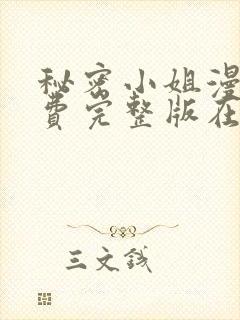 秘密小姐漫
费完整版在
三文钱